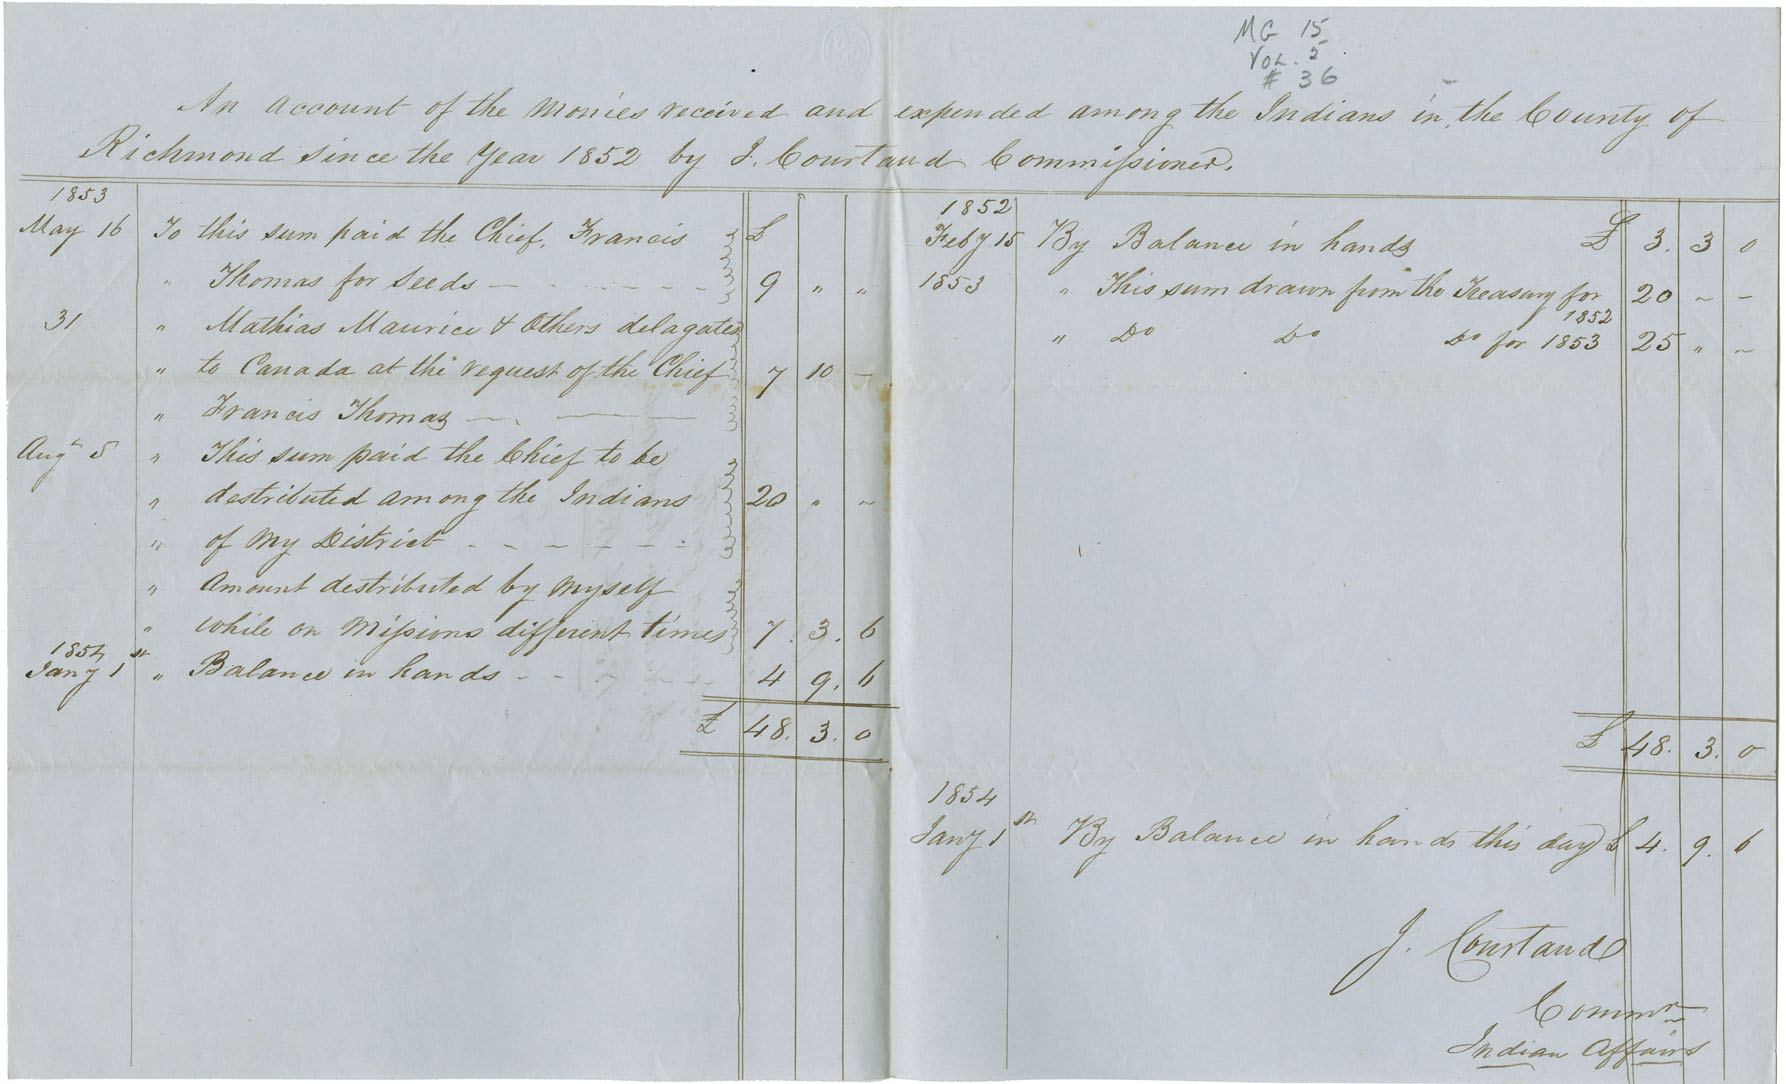 MG 15
VOL. 5
# 36
An Account of the Monies received and expended among the Indians in the County of
Richmond since the Year 1852 by J. Courtaud Commissioner.
1853
May 16 To this sum paid the Chief, Francis £
" Thomas for Seeds 9 " "
31 " Mathias Maurice & Others delagates
" to Canada at the request of the Chief 7 10 -
" Francis Thomas
Augt 5 " This sum paid the Chief to be
" destributed among the Indians 20 " ~
" of My District
" Amount destributed by Myself
" while on Missions different times 7. 3. 6
1854
Jany 1st " Balance in hands 4 9. 6
£ 48. 3. 0
1852
Feby 15 By Balance in hands £ 3. 3 0
1853 " This sum drawn from the Treasury for 20 ~ -
1852
" Do Do Do for 1853 25 " ~
£ 48. 3. 0
1854
Jany 1st By Balance in hands this day £ 4. 9. 6
J. Courtaud
Commr
Indian Affairs